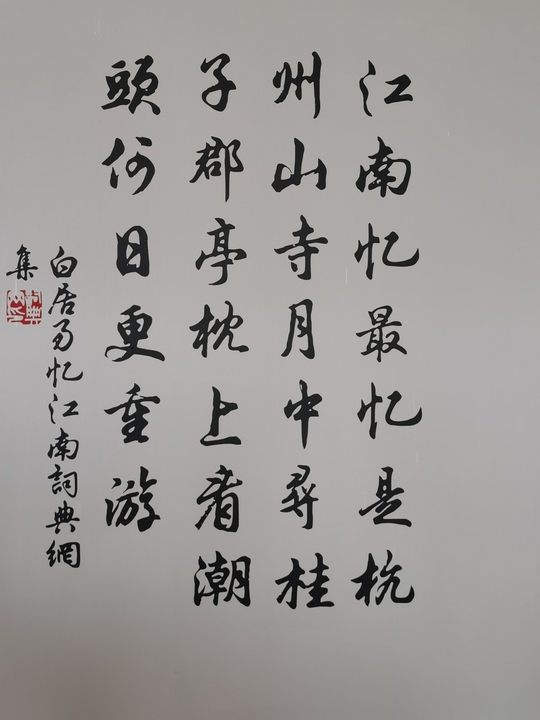 江南忆最忆是杭
州山寺月中尋桂
子郡亭枕上看潮
頭何日更重游
白居易忆江南詞典網
集